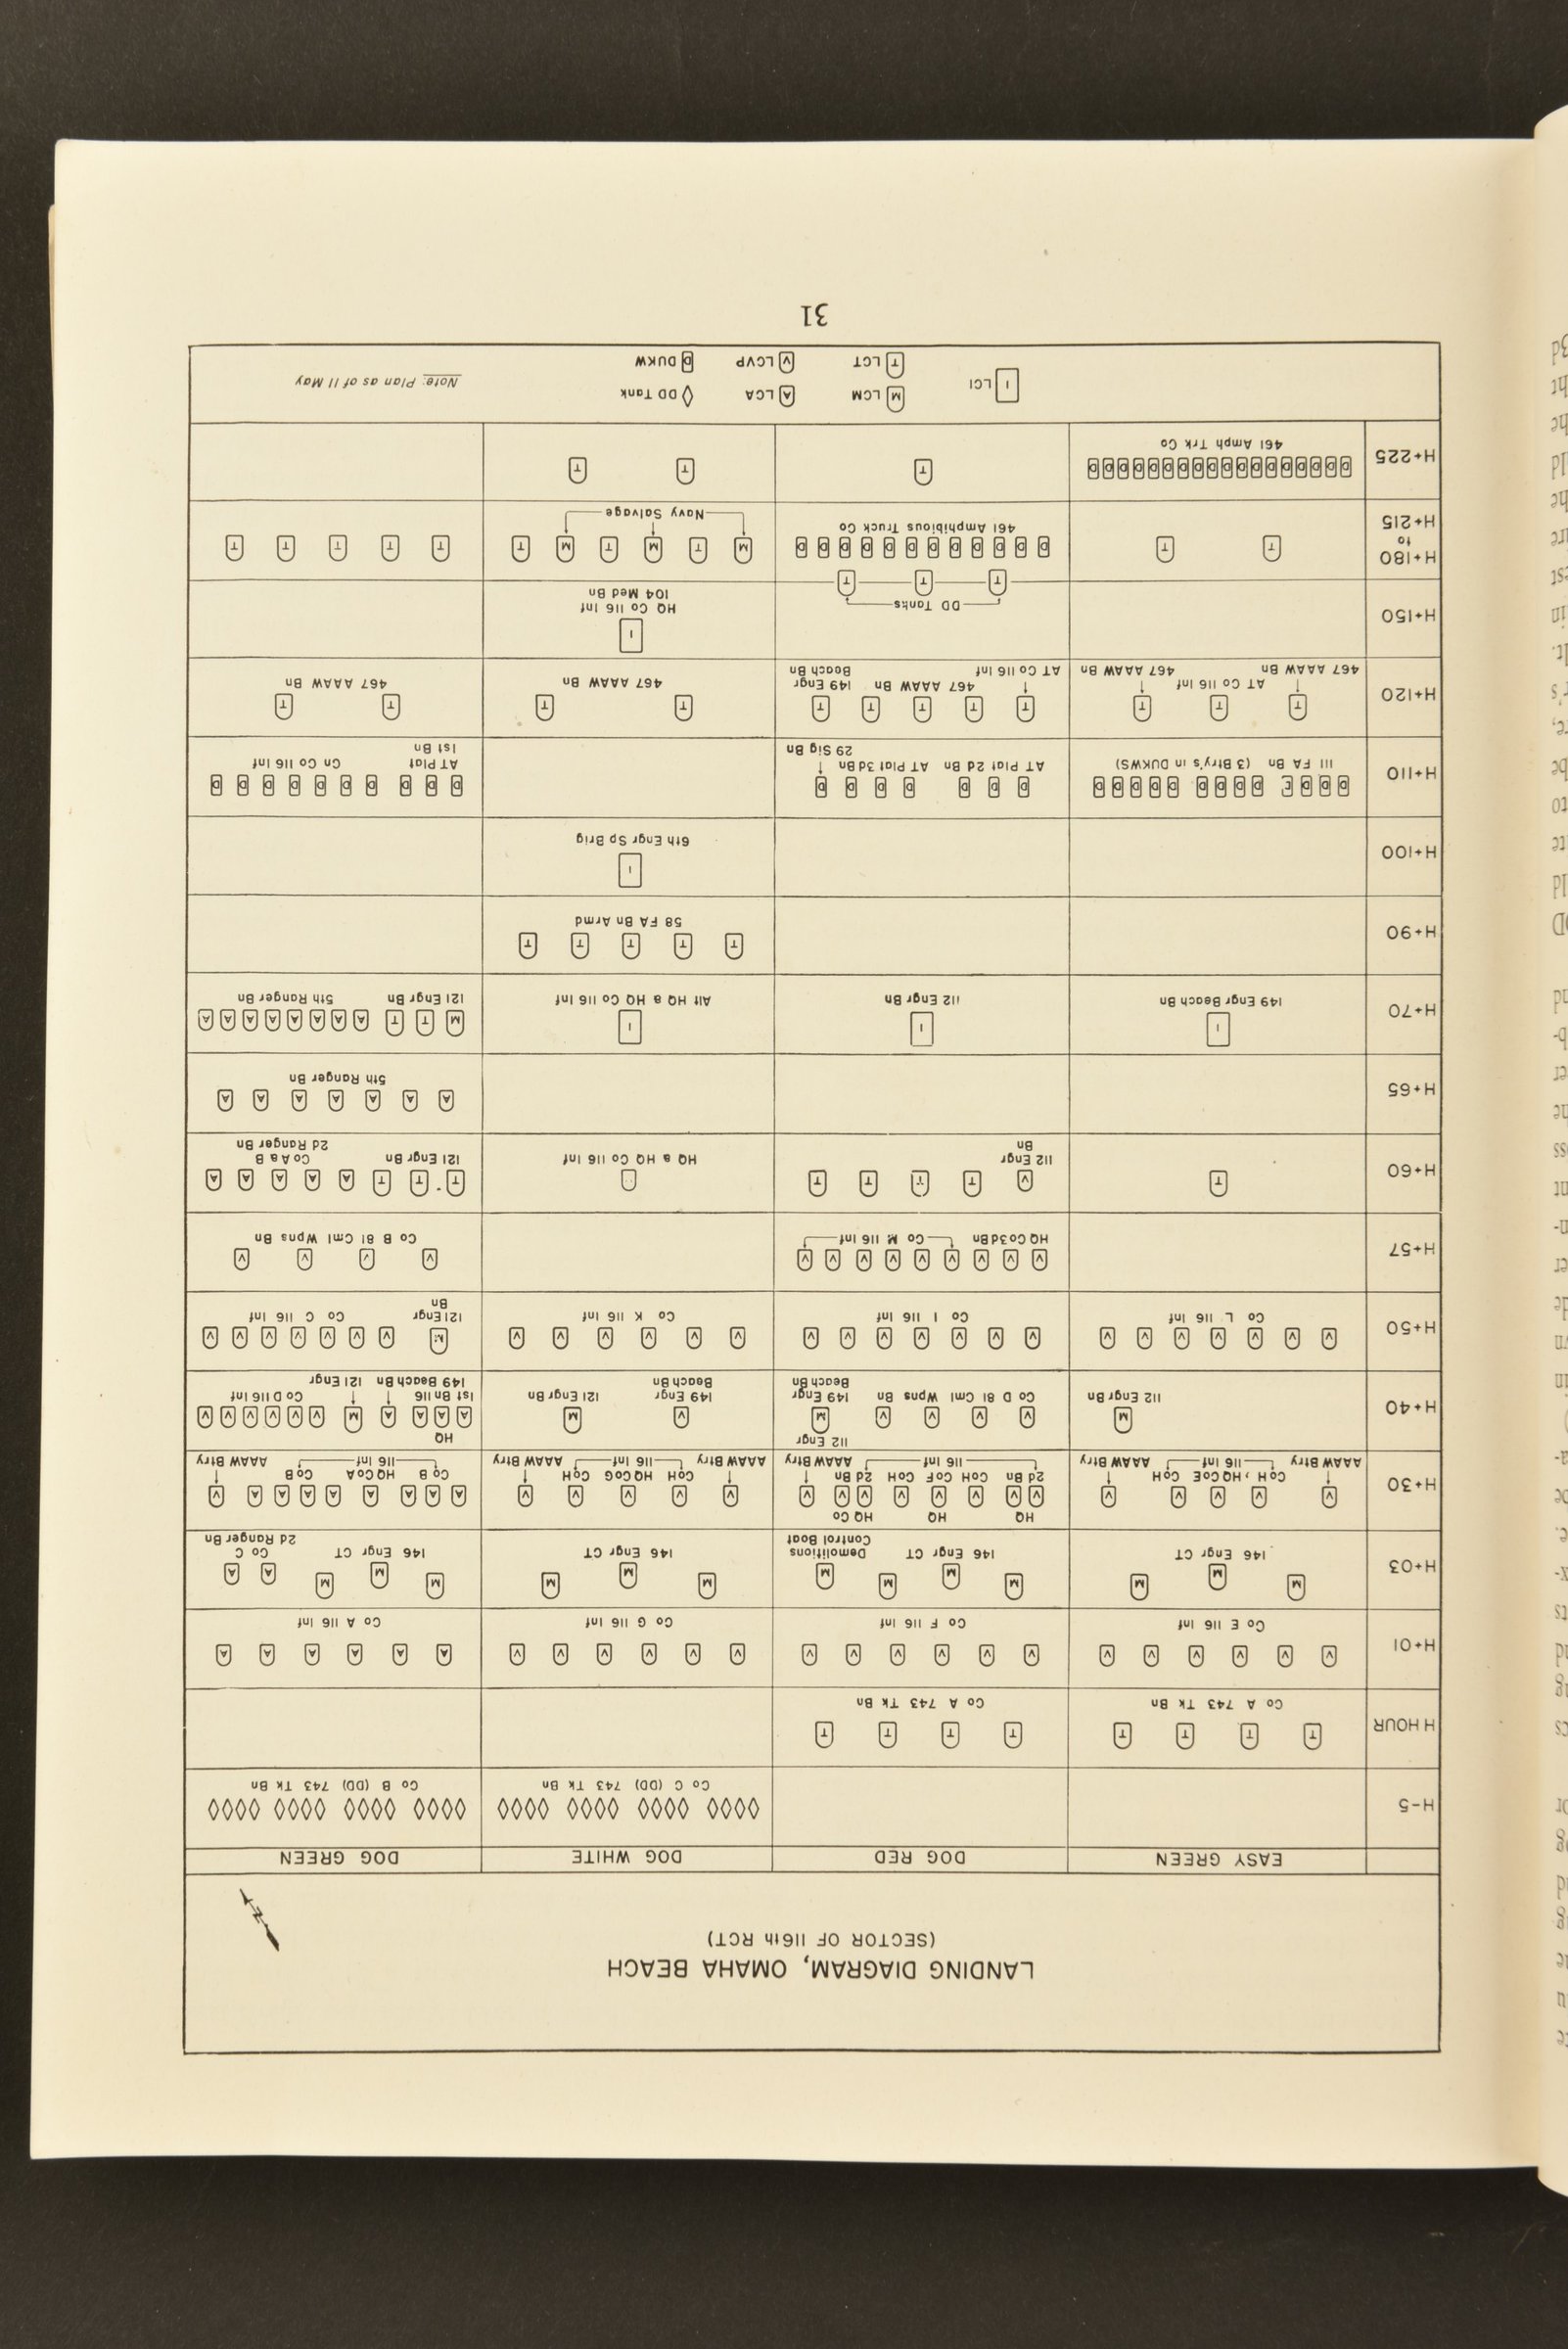 LANDING DIAGRAM, OMAHA BEACH
(SECTOR OF 116th RCT)
EASY GREEN DOG RED DOG WHITE DOG GREEN
H-5
Co C (DD) 743 Tk Bn
Co B (DD) 743 Tk Bn
H HOUR
Co A 743 Tk Bn
Co A 743 Tk Bn
H+01
Co E 116 Inf
Co F 116 Inf
Co G 116 Inf
Co A 116 Inf
H+03
146 Engr CT
146 Engr CT
Demolitions
Control Boat
146 Engr CT
146 Engr CT
Co C
2d Ranger Bn
H+30
Co H HQ Co E Co H
AAAW Btry 116 Inf AAAW Btry
HQ HQ HQ Co
2d Bn Co H Co F Co H 2d Bn
116 Inf AAAW Btry
Co H HQ Co G Co H
AAAW Btry 116 Inf AAAW Btry
Co B HQ Co A Co B
116 Inf AAAW Btry
H+40
112 Engr Bn
112 Engr
Co D 81 Cml Wpns Bn 149 Engr
Beach Bn
149 Engr
Beach Bn
121 Engr Bn
HQ
1st Bn 116 Co D 116 Inf
149 Beach Bn 121 Engr
H+50
Co L 116 Inf
Co I 116 Inf
Co K 116 Inf
121 Engr
Bn
Co C 116 Inf
H+57
HQ Co 3d Bn Co M 116 Inf
Co B 81 Cml Wpns Bn
H+60
112 Engr
Bn
HQ & HQ Co 116 Inf
121 Engr Bn
Co A & B
2d Ranger Bn
H+65
5th Ranger Bn
H+70
149 Engr Beach Bn
112 Engr Bn
Alt HQ & HQ Co 116 Inf
121 Engr Bn 5th Ranger Bn
H+90
58 FA Bn Armd
H+100
6th Engr Sp Brig
H+110
111 FA Bn (3 Btry's in DUKWS)
AT Plat 2d Bn AT Plat 3d Bn
29 Sig Bn
AT Plat
1st Bn
Cn Co 116 Inf
H+120
AT Co 116 Inf
467 AAAW Bn 467 AAAW Bn
467 AAAW Bn 149 Engr
AT Co 116 Inf Beach Bn
467 AAAW Bn
467 AAAW Bn
H+150
DD Tanks
HQ Co 116 Inf
104 Med Bn
H+180
to
H+215
461 Amphibious Truck Co
Navy Salvage
H+225
461 Amph Trk Co
LCI
LCM LCA DD Tank
LCT LCVP DUKW
Note: Plan as of 11 May
31